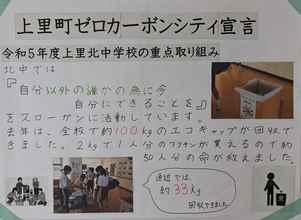 上里町ゼロカーボンシティ宣言
令和5年度上里北中学校の重点取り組み
北中では
『自分以外の誰かの為に今
自分にできることを』
をスローガンに活動しています。
去年は、全校で約100kgのエコキャップが回収で
きました。2kgで1人分のワクチンが買えるので約
50人分の命が救えました。
通近では、
約33kg
回収できました